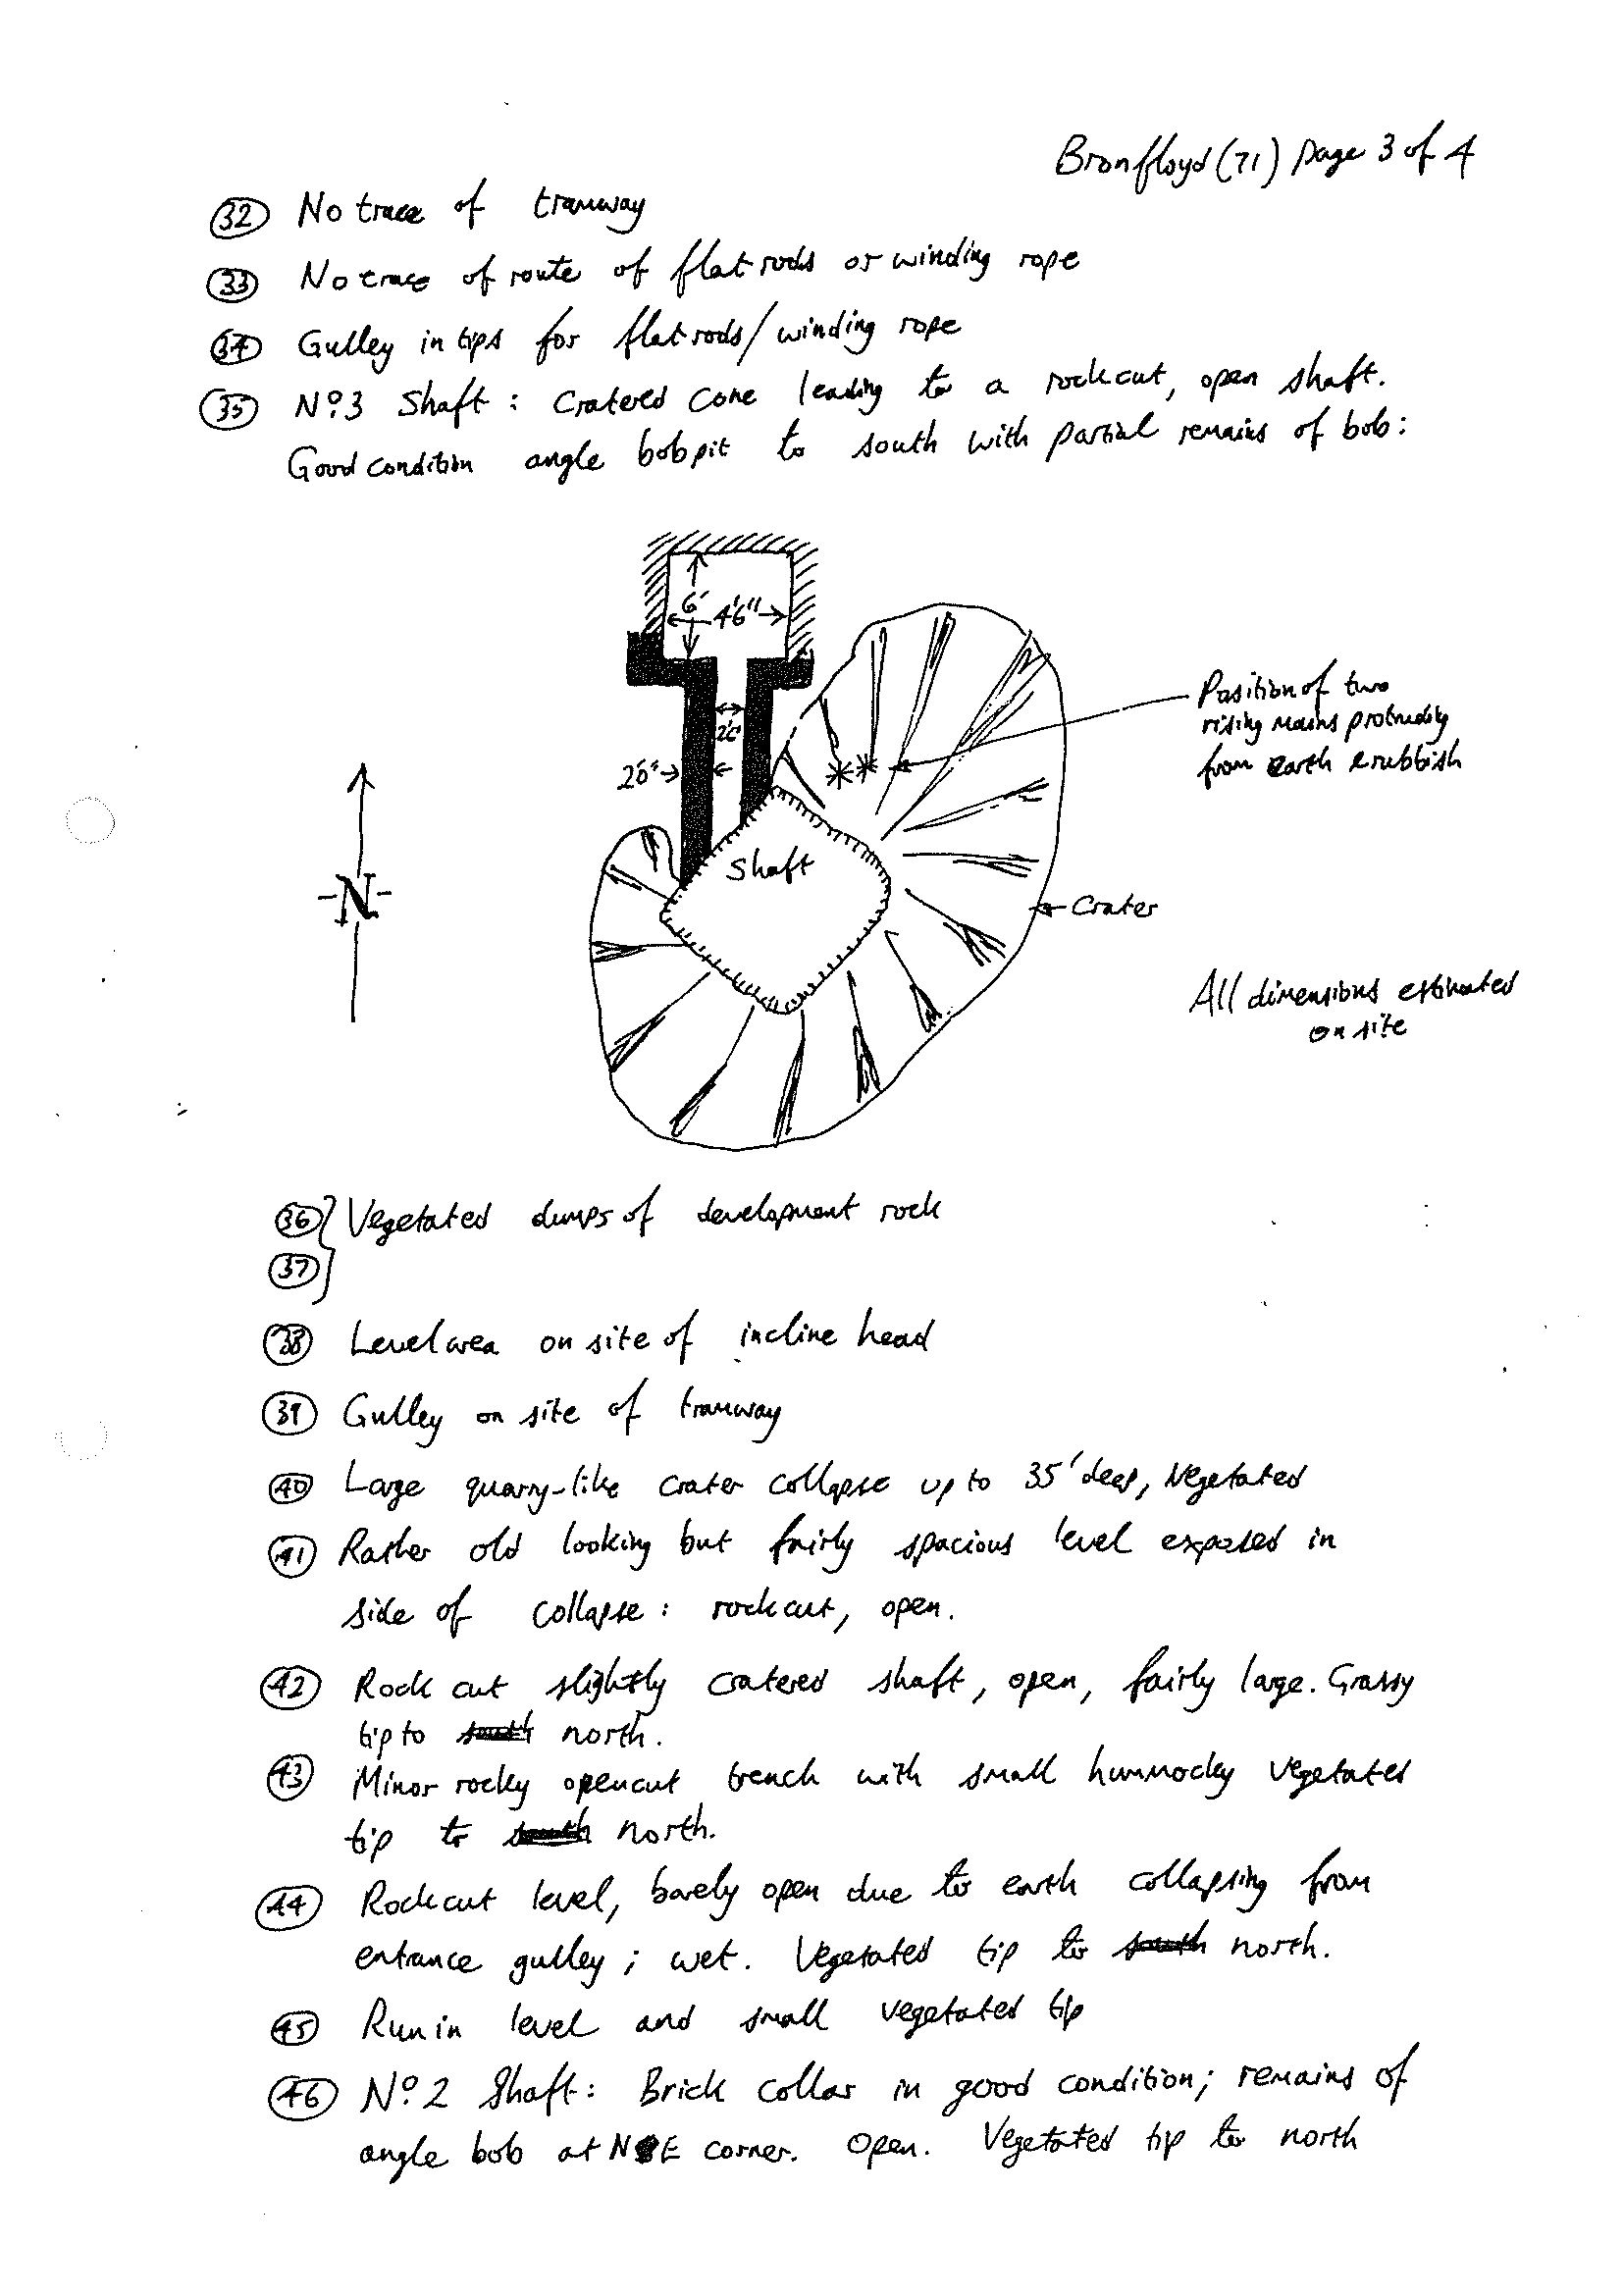 Bronfloyd (71) page 3 of 4
32 No trace of tramway
33 No trace of route of flatrods or winding rope
34 Gulley in tips for flatrods/winding rope
35 Nº3 Shaft: Cratered cone leading to a rockcut, open shaft.
Good condition angle bobpit to south with partial remains of bob:
6'
4'6"
Position of two
rising mains protruding
from earth & rubbish
2'0"
2'6"
Shaft
N
Crater
All dimensions estimated
on site
36 Vegetated dumps of development rock
37
38 Level area on site of incline head
39 Gulley on site of tramway
40 Large quarry-like crater collapse up to 35' deep, vegetated
41 Rather old looking but fairly spacious level exposed in
side of collapse: rockcut, open.
42 Rock cut slightly cratered shaft, open, fairly large. Grassy
tip to south north.
43 Minor rocky opencut trench with small hummocky vegetated
tip to south north.
44 Rockcut level, barely open due to earth collapsing from
entrance gulley; wet. Vegetated tip to south north.
45 Run in level and small vegetated tip
46 Nº.2 Shaft: Brick collar in good condition; remains of
angle bob at NE corner. Open. Vegetated tip to north